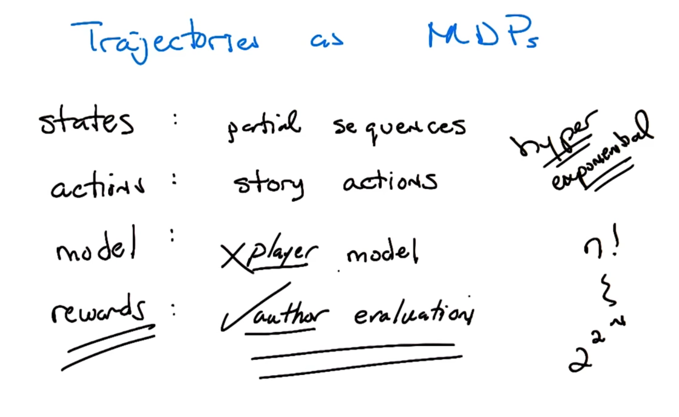 Trajectories as MDPs
states : partial sequences
actions : story actions
model : X player model
rewards : ✓ author evaluation
hyper
exponential
n!
2^2^n